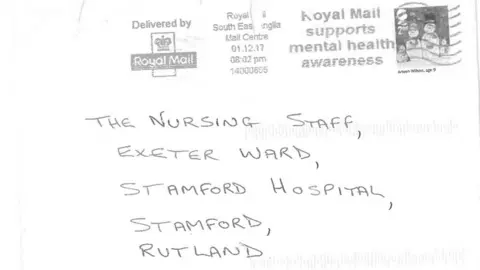 Delivered by
Royal Mail
Royal
South East Anglia
Mail Centre
01.12.17
08:02 pm
Royal Mail
supports
mental health
awareness
THE NURSING STAFF,
EXETER WARD,
STAMFORD HOSPITAL,
STAMFORD,
RUTLAND